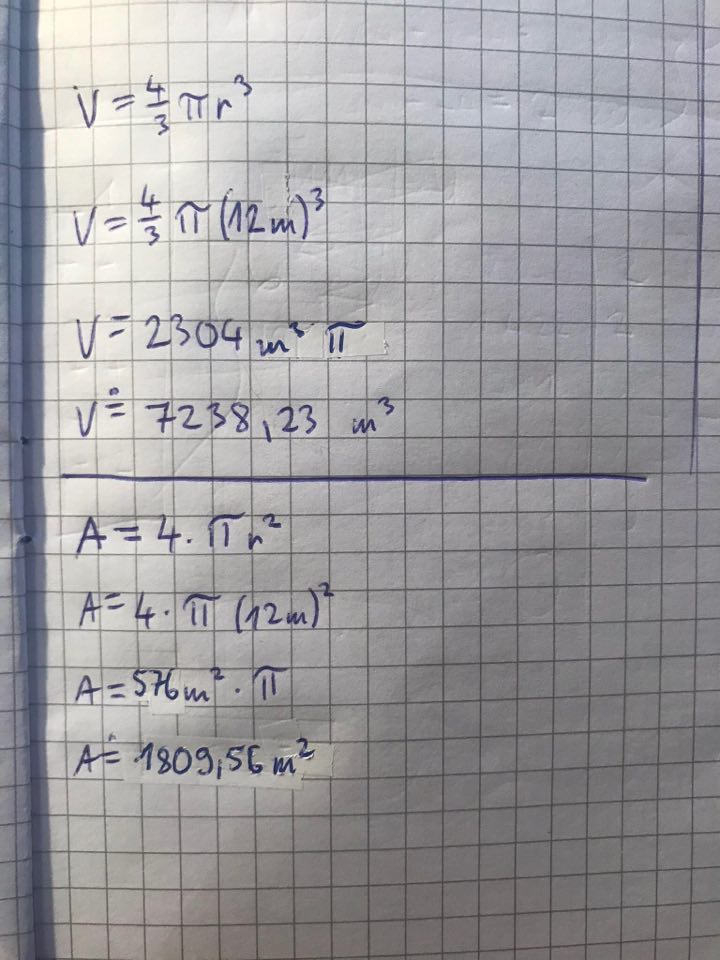 V = 4/3 π r³
V = 4/3 π (12m)³
V = 2304 m³ π
V ≐ 7238,23 m³
A = 4 · π r²
A = 4 · π (12m)²
A = 576m² · π
A ≐ 1809,56 m²